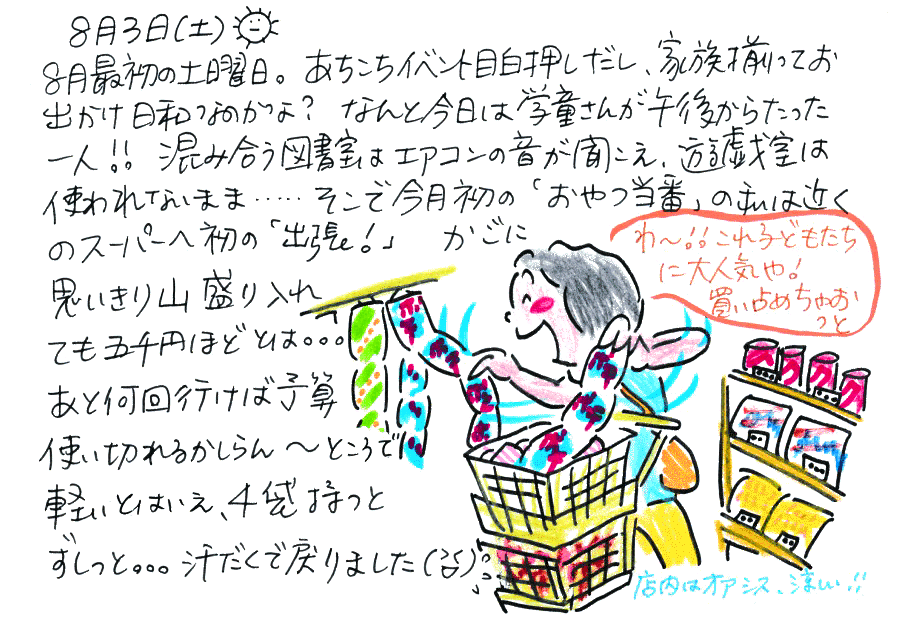 8月3日(土)
8月最初の土曜日。あちこちイベント目白押しだし、家族揃ってお
出かけ日和なのかな？なんと今日は学童さんが午後からたった
一人!! 混み合う図書室はエアコンの音が聞こえ、遊戯室は
使われないまま……そこで今月初の「おやつ当番」の私は近く
のスーパーへ初の「出張！」 かごに
思いきり山盛り入れ
ても五千円ほどとは。。。
あと何回行けば予算
使い切れるかしらん〜ところで
軽いとはいえ、4袋持つと
ずしっと。。。汗だくで戻りました(笑)
わ〜!!これ子どもたち
に大人気や！
買い占めちゃお
っと
店内はオアシス、涼しい!!